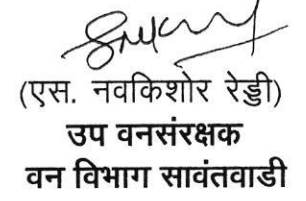 (एस. नवकिशोर रेड्डी)
उप वनसंरक्षक
वन विभाग सावंतवाडी